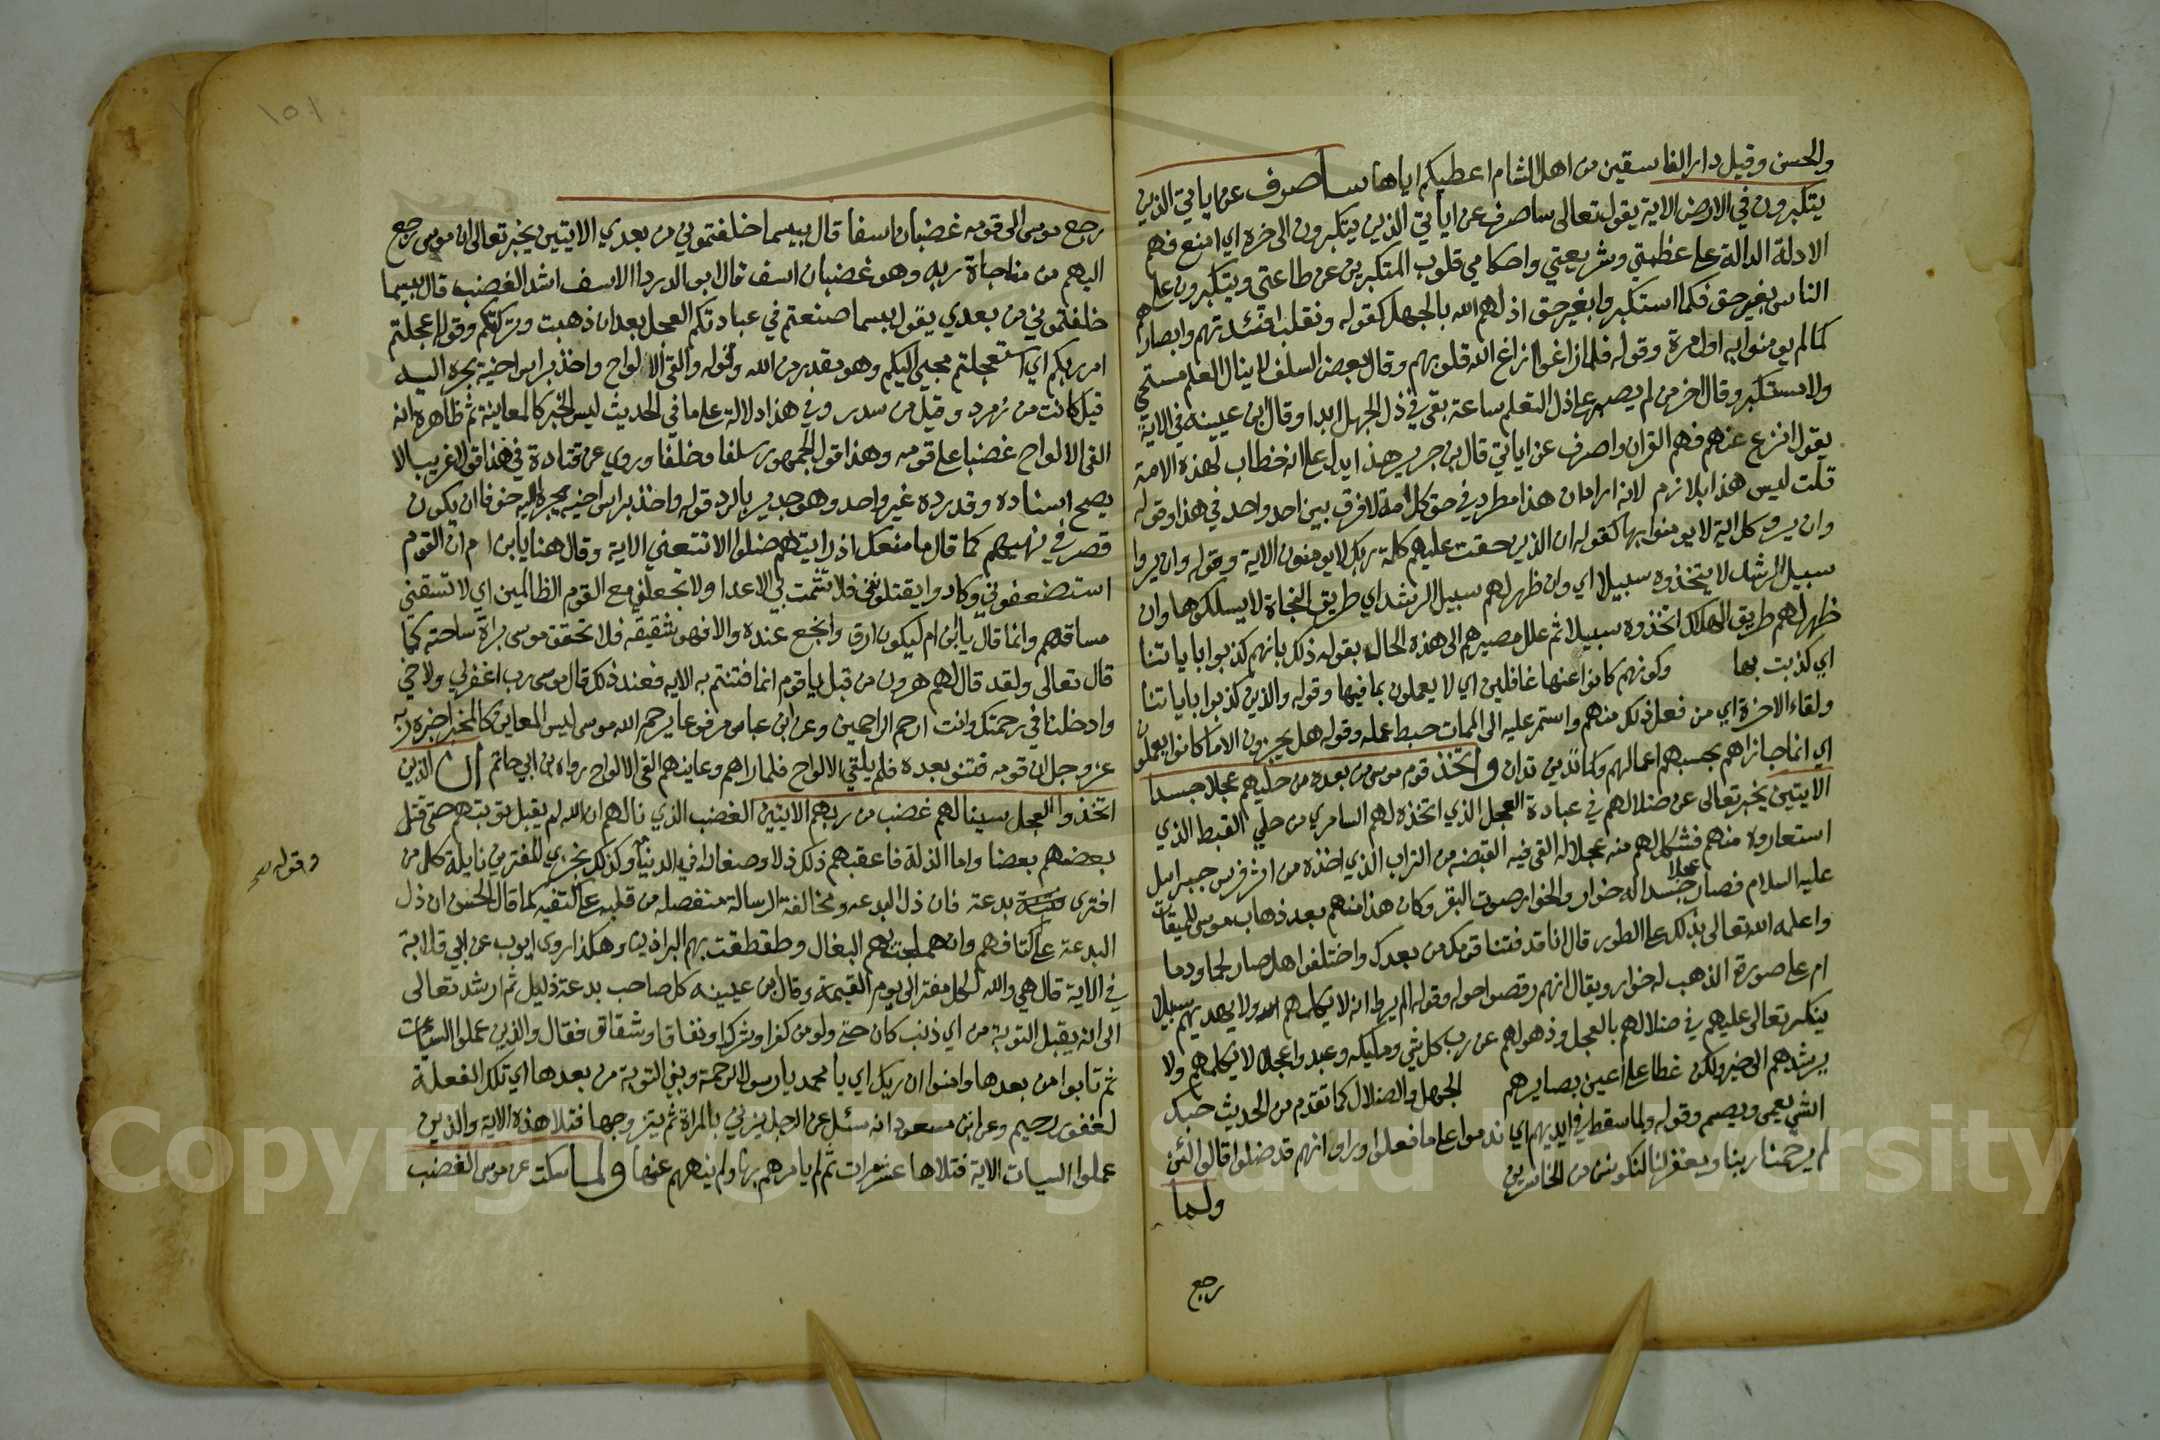 والحسن وقيل دار الفاسقين من اهل الشام اعطيكم اياها ساصرف عن اياتي الذين
يتكبرون في الارض الاية يقول تعالى ساصرف عن اياتي الذين يتكبرون الى اخره اي امنع فهم
الادلة الدالة على عظمتي وشريعتي واحكامي قلوب المتكبرين عن طاعتي ويتكبرون على
الناس بغير حق فكما استكبروا بغير حق اذلهم الله بالجهل كقوله ونقلب افئدتهم وابصارهم
كما لم يومنوا به اول مرة وقوله فلما زاغوا ازاغ الله قلوبهم وقال بعض السلف لا ينال العلم مستحي
ولا مستكبر وقال اخر من لم يصبر على ذل التعلم ساعة بقي في ذل الجهل ابدا وقال ابن عيينه في الاية
يقول انزع عنهم فهم القران واصرف عن اياتي قال بن جرير هذا يدل على انه خطاب لهذه الامة
قلت ليس هذا بلازم لانه اراد ان هذا مطرد في حق كل امة لا فرق بين احد واحد في هذا وقوله
وان يروا كل اية لا يومنوا بها كقوله ان الذين حقت عليهم كلمة ربك لا يومنون الاية وقوله وان يروا
سبيل الرشد لا يتخذوه سبيلا اي وان ظهر لهم سبيل الرشد اي طريق النجاة لا يسلكوها وان
ظهر لهم طريق الهلاك اتخذوه سبيلا ثم علل مصيرهم الى هذه الحال بقوله ذلك بانهم كذبوا باياتنا
اي كذبت بها وكونهم كانوا عنها غافلين اي لا يعملون بما فيها وقوله والذين كذبوا باياتنا
ولقاء الاخرة اي من فعل ذلك منهم واستمر عليه الى الممات حبط عمله وقوله هل يجزون الا ما كانوا يعملون
اي انما جازاهم بحسب اعمالهم وكما تدين تدان واتخذ قوم موسى من بعده من حليهم عجلا جسدا
الايتين يخبر تعالى عن ضلالهم في عبادة العجل الذي اتخذه لهم السامري من حلي القبط الذي
استعاروه منهم فشكل لهم منه عجلا ثم القى فيه القبضه من التراب الذي اخذه من اثر فرس جبرايل
عليه السلام فصار عجلا جسدا له خوار والخوار صوت البقر وكان هذا منهم بعد ذهاب موسى للميقات
واعلمه الله تعالى بذلك على الطور قال انا قد فتنا قومك من بعدك واختلفوا هل صار لحما ودما
ام على صورة الذهب له خوار ويقال انهم رقصوا حوله وقوله الم يروا انه لا يكلمهم ولا يهديهم سبيلا
ينكر تعالى عليهم في ضلالهم بالعجل وذهولهم عن رب كل شي ومليكه وعبدوا عجلا لا يكلمهم ولا
يرشدهم الى خير ولكن غطا على اعين بصايرهم الجهل والضلال كما تقدم من الحديث حبك
الشي يعمي ويصم وقوله ولما سقط في ايديهم اي ندموا على ما فعلوا وراوا انهم قد ضلوا قالوا لئن
لم يرحمنا ربنا ويغفر لنا لنكونن من الخاسرين
ولما
رجع
١٥١
رجع موسى الى قومه غضبان اسفا قال بيسما خلفتموني من بعدي الايتين يخبر تعالى ان موسى رجع
اليهم من مناجاة ربه وهو غضبان اسف قال ابو الدردا الاسف اشد الغضب قال بيسما
خلفتموني من بعدي يقول بيسما صنعتم في عبادتكم العجل بعد ان ذهبت وتركتكم وقوله اعجلتم
امر ربكم اي استعجلتم مجيي اليكم وهو مقدر من الله وقوله والقى الالواح واخذ براس اخيه يجره اليه
قيل كانت من زمرد وقيل من سدر وفي هذا دلالة على ما في الحديث ليس الخبر كالمعاينة ثم ظاهره انه
القى الالواح غضبا على قومه وهذا قول الجمهور سلفا وخلفا وروي عن قتادة في هذا قولا غريبا لا
يصح اسناده وقد رده غير واحد وهو جدير بالرد قوله واخذ براس اخيه يجره اليه خوفا ان يكون
قصر في نهيهم كما قال ما منعك اذ رايتهم ضلوا الا تتبعني الاية وقال هنا يا بن ام ان القوم
استضعفوني وكادوا يقتلونني فلا تشمت بي الاعدا ولا تجعلني مع القوم الظالمين اي لا تسقني
مساقهم وانما قال يا ابن ام ليكون ارق وانجع عنده والا فهو شقيقه فلا تحقق موسى براة ساحته كما
قال تعالى ولقد قال لهم هرون من قبل يا قوم انما فتنتم به الايه فعند ذلك قال موسى رب اغفر لي ولاخي
وادخلنا في رحمتك وانت ارحم الراحمين وعن ابن عباس مرفوعا يرحم الله موسى ليس المعاين كالمخبر اخبره ربه
عز وجل ان قومه فتنو بعده فلم يلقي الالواح فلما راهم وعاينهم القى الالواح رواه بن ابي حاتم ان الذين
اتخذوا العجل سينالهم غضب من ربهم الايتين الغضب الذي نالهم ان الله لم يقبل توبتهم حتى قتل
بعضهم بعضا واما الذلة فاعقبهم ذلك ذلا وصغارا في الدنيا وكذلك نجزي المفترين نايلة كل من
وقوله صح
افترى بدعة فان ذل البدعه ومخالفة الرسالة متصله من قلبه على كتفيه كما قال الحسن ان ذل
البدعة على اكتافهم وان هملجت بهم البغال وطقطقت بهم البراذين وهكذا روى ايوب عن ابي قلابة
في الاية قال هي والله لكل مفتر الى يوم القيمة وقال بن عيينه كل صاحب بدعة ذليل ثم ارشد تعالى
الى انه يقبل التوبة من اي ذنب كان حتى ولو من كفر او شرك او نفاق او شقاق فقال والذين عملوا السيات
ثم تابوا من بعدها وامنوا ان ربك اي يا محمد يا رسول الرحمة ونبي التوبة من بعدها اي تلك الفعلة
لغفور رحيم وعن ابن مسعود انه سئل عن الرجل يزني بالمراة ثم يتزوجها فتلا هذه الاية والذين
عملوا السيات الاية فتلاها عشر مرات ثم لم يامرهم بها ولم ينههم عنها ولما سكت عن موسى الغضب
Copyright © King Saud University